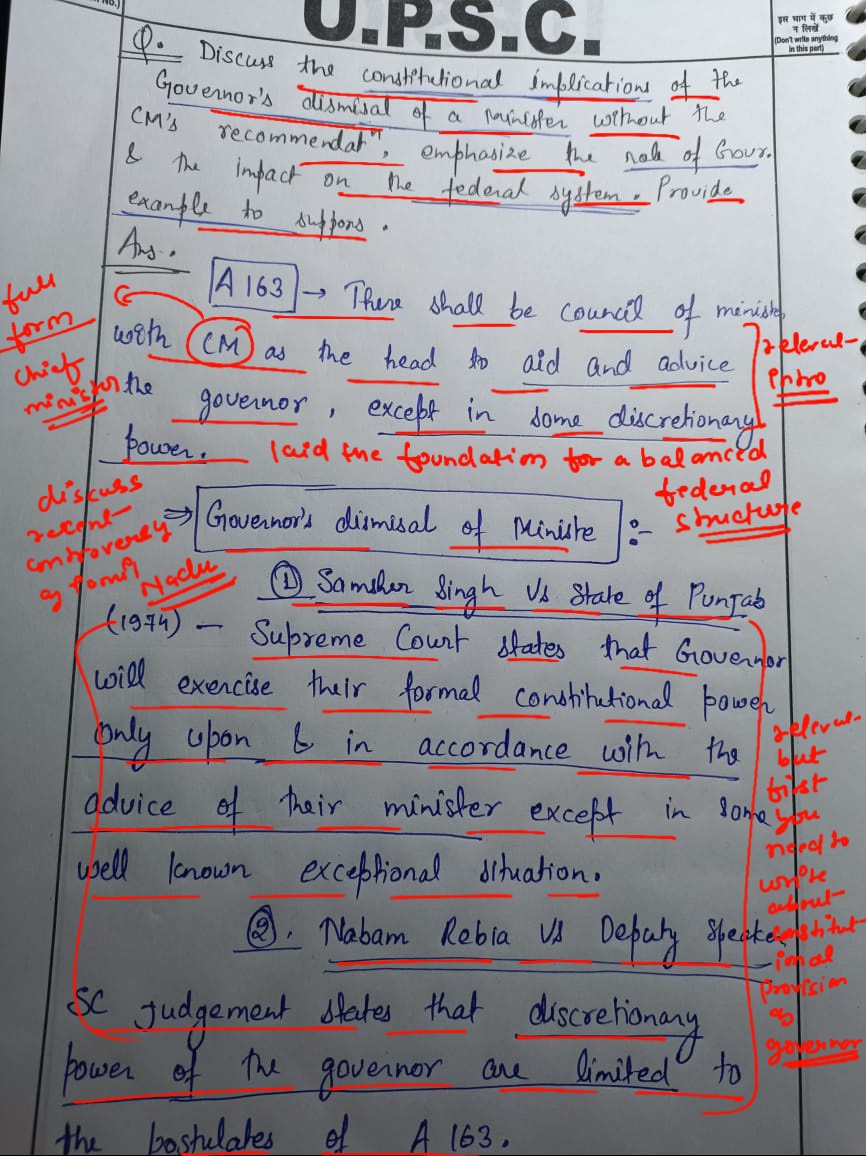 U.P.S.C.
इस भाग में कुछ
न लिखें
(Don't write anything
in this part)
Q. Discuss the constitutional implications of the
Governor's dismisal of a Minister without the
CM's recommendatn, emphasize the role of Gour.
& the impact on the federal system. Provide
example to suppors.
Ans.
A 163 → There shall be council of minister
with CM as the head to aid and advice
the governor, except in some discretionary
power. laid the foundation for a balanced
federal
structure
full
form
Chief
minister
relevant
intro
discuss
recent
controversy
of Tamil
Nadu
⇒ Governor's dismisal of Ministe :-
① Samsher Singh Vs State of Punjab
(1974) – Supreme Court states that Governor
will exercise their formal constitutional power
only upon & in accordance with the
advice of their minister except in some
well known exceptional situation.
②. Nabam Rebia Vs Deputy Speaker
SC judgement states that discretionary
power of the governor are limited to
the postulates of A 163.
relevant
but
first
you
need to
write
about
constitut-
ional
provision
of
governor